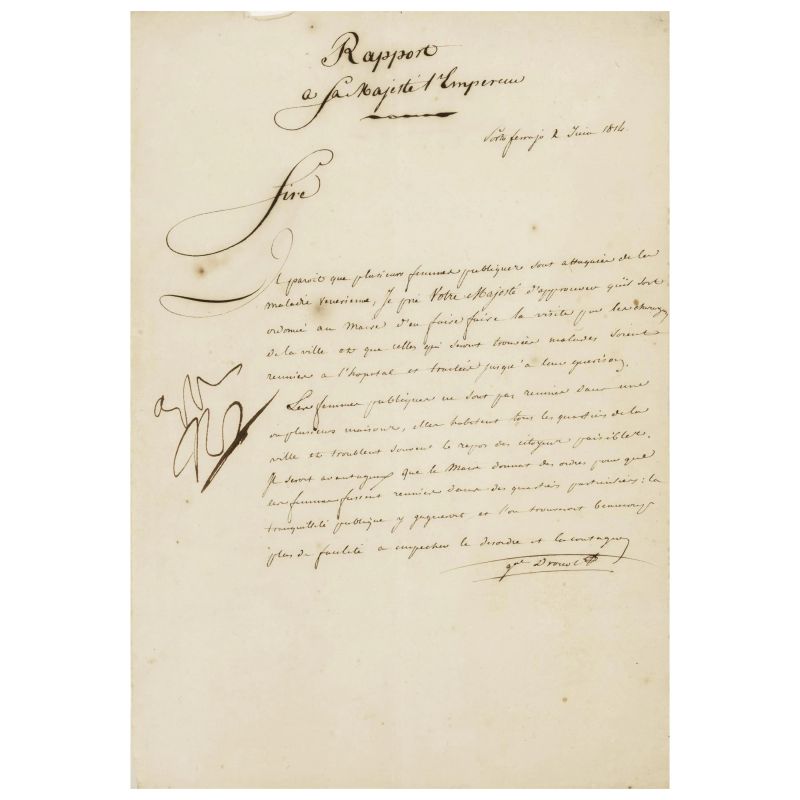 Rapport
a Sa Majesté l'Empereur
Porto ferrajo 2 Juin 1814.
Sire
Il paroit que plusieurs femmes publiques sont attaquées de la
maladie venerienne, Je prie Votre Majesté d'approuver qu'il soit
ordonné au Maire d'en faire faire la visite par les chirurgiens
de la ville et que celles qui seront trouvées malades soient
reunies a l'hopital et traitées jusqu'à leur guerison.
Les femmes publiques ne sont pas reunies dans une
ou plusieurs maisons, elles habitent tous les quartiers de la
ville et troublent souvent le repos des citoyens paisibles.
Il seroit avantageux que le Maire donnat des ordres pour que
les femmes fussent reunies dans des quartiers particuliers; la
tranquillité publique y gagneroit et l'on trouveroit beaucoup
plus de facilité a empecher le desordre et la contagion
gal Drouot